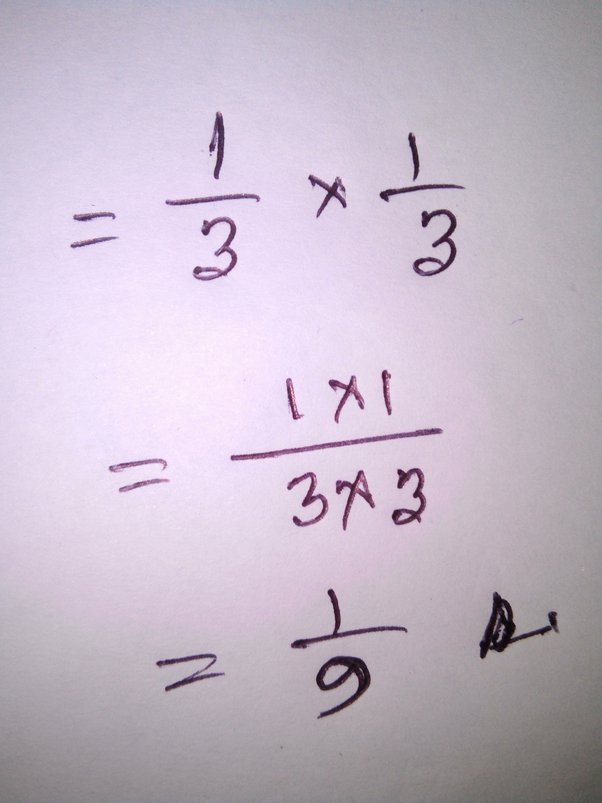 = 1/3 × 1/3
= 1×1/3×3
= 1/9